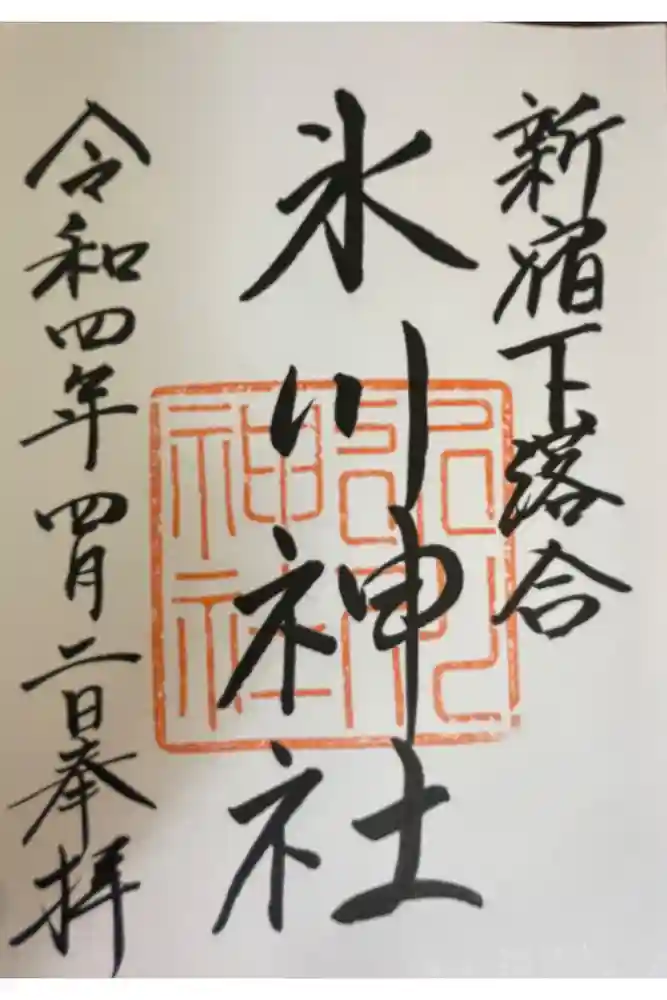 新宿下落合
氷川神社
令和四年四月二日奉拝